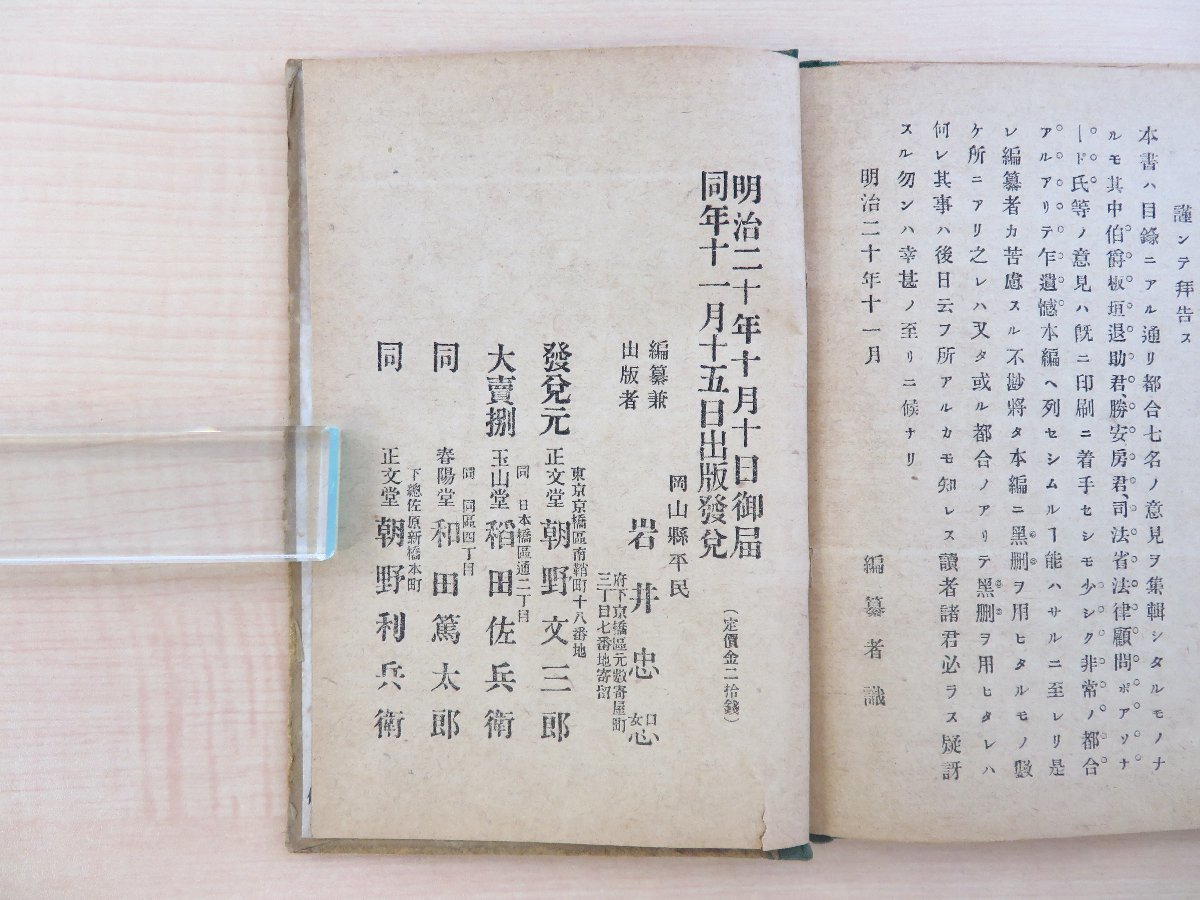 謹ンテ拜告ス
本書ハ目錄ニアル通リ都合七名ノ意見ヲ集輯シタルモノナ
ルモ其中伯爵板垣退助君、勝安房君、司法省法律顧問ボアソナ
ード氏等ノ意見ハ旣ニ印刷ニ着手セシモ少シク非常ノ都合
アルアリテ乍遺憾本編ヘ列セシムルヿ能ハサルニ至レリ是
レ編纂者カ苦慮スル不尠將タ本編ニ黑删ヲ用ヒタルモノ數
ケ所ニアリ之レハ又タ或ル都合ノアリテ黑删ヲ用ヒタレハ
何レ其事ハ後日云フ所アルカモ知レス讀者諸君必ラス疑訝
スル勿ンハ幸甚ノ至リニ候ナリ
明治二十年十一月
編纂者識
明治二十年十月十日御届
同年十一月十五日出版發兌
(定價金二拾錢)
岡山縣平民
編纂兼
出版者
岩井忠
府下京橋區元數寄屋町
三丁目七番地寄留
東京京橋區南鞘町十八番地
發兌元 正文堂 朝野文三郎
同 日本橋區通二丁目
大賣捌 玉山堂 稻田佐兵衛
同 同區四丁目
同 春陽堂 和田篤太郎
下總佐原新橋本町
同 正文堂 朝野利兵衛